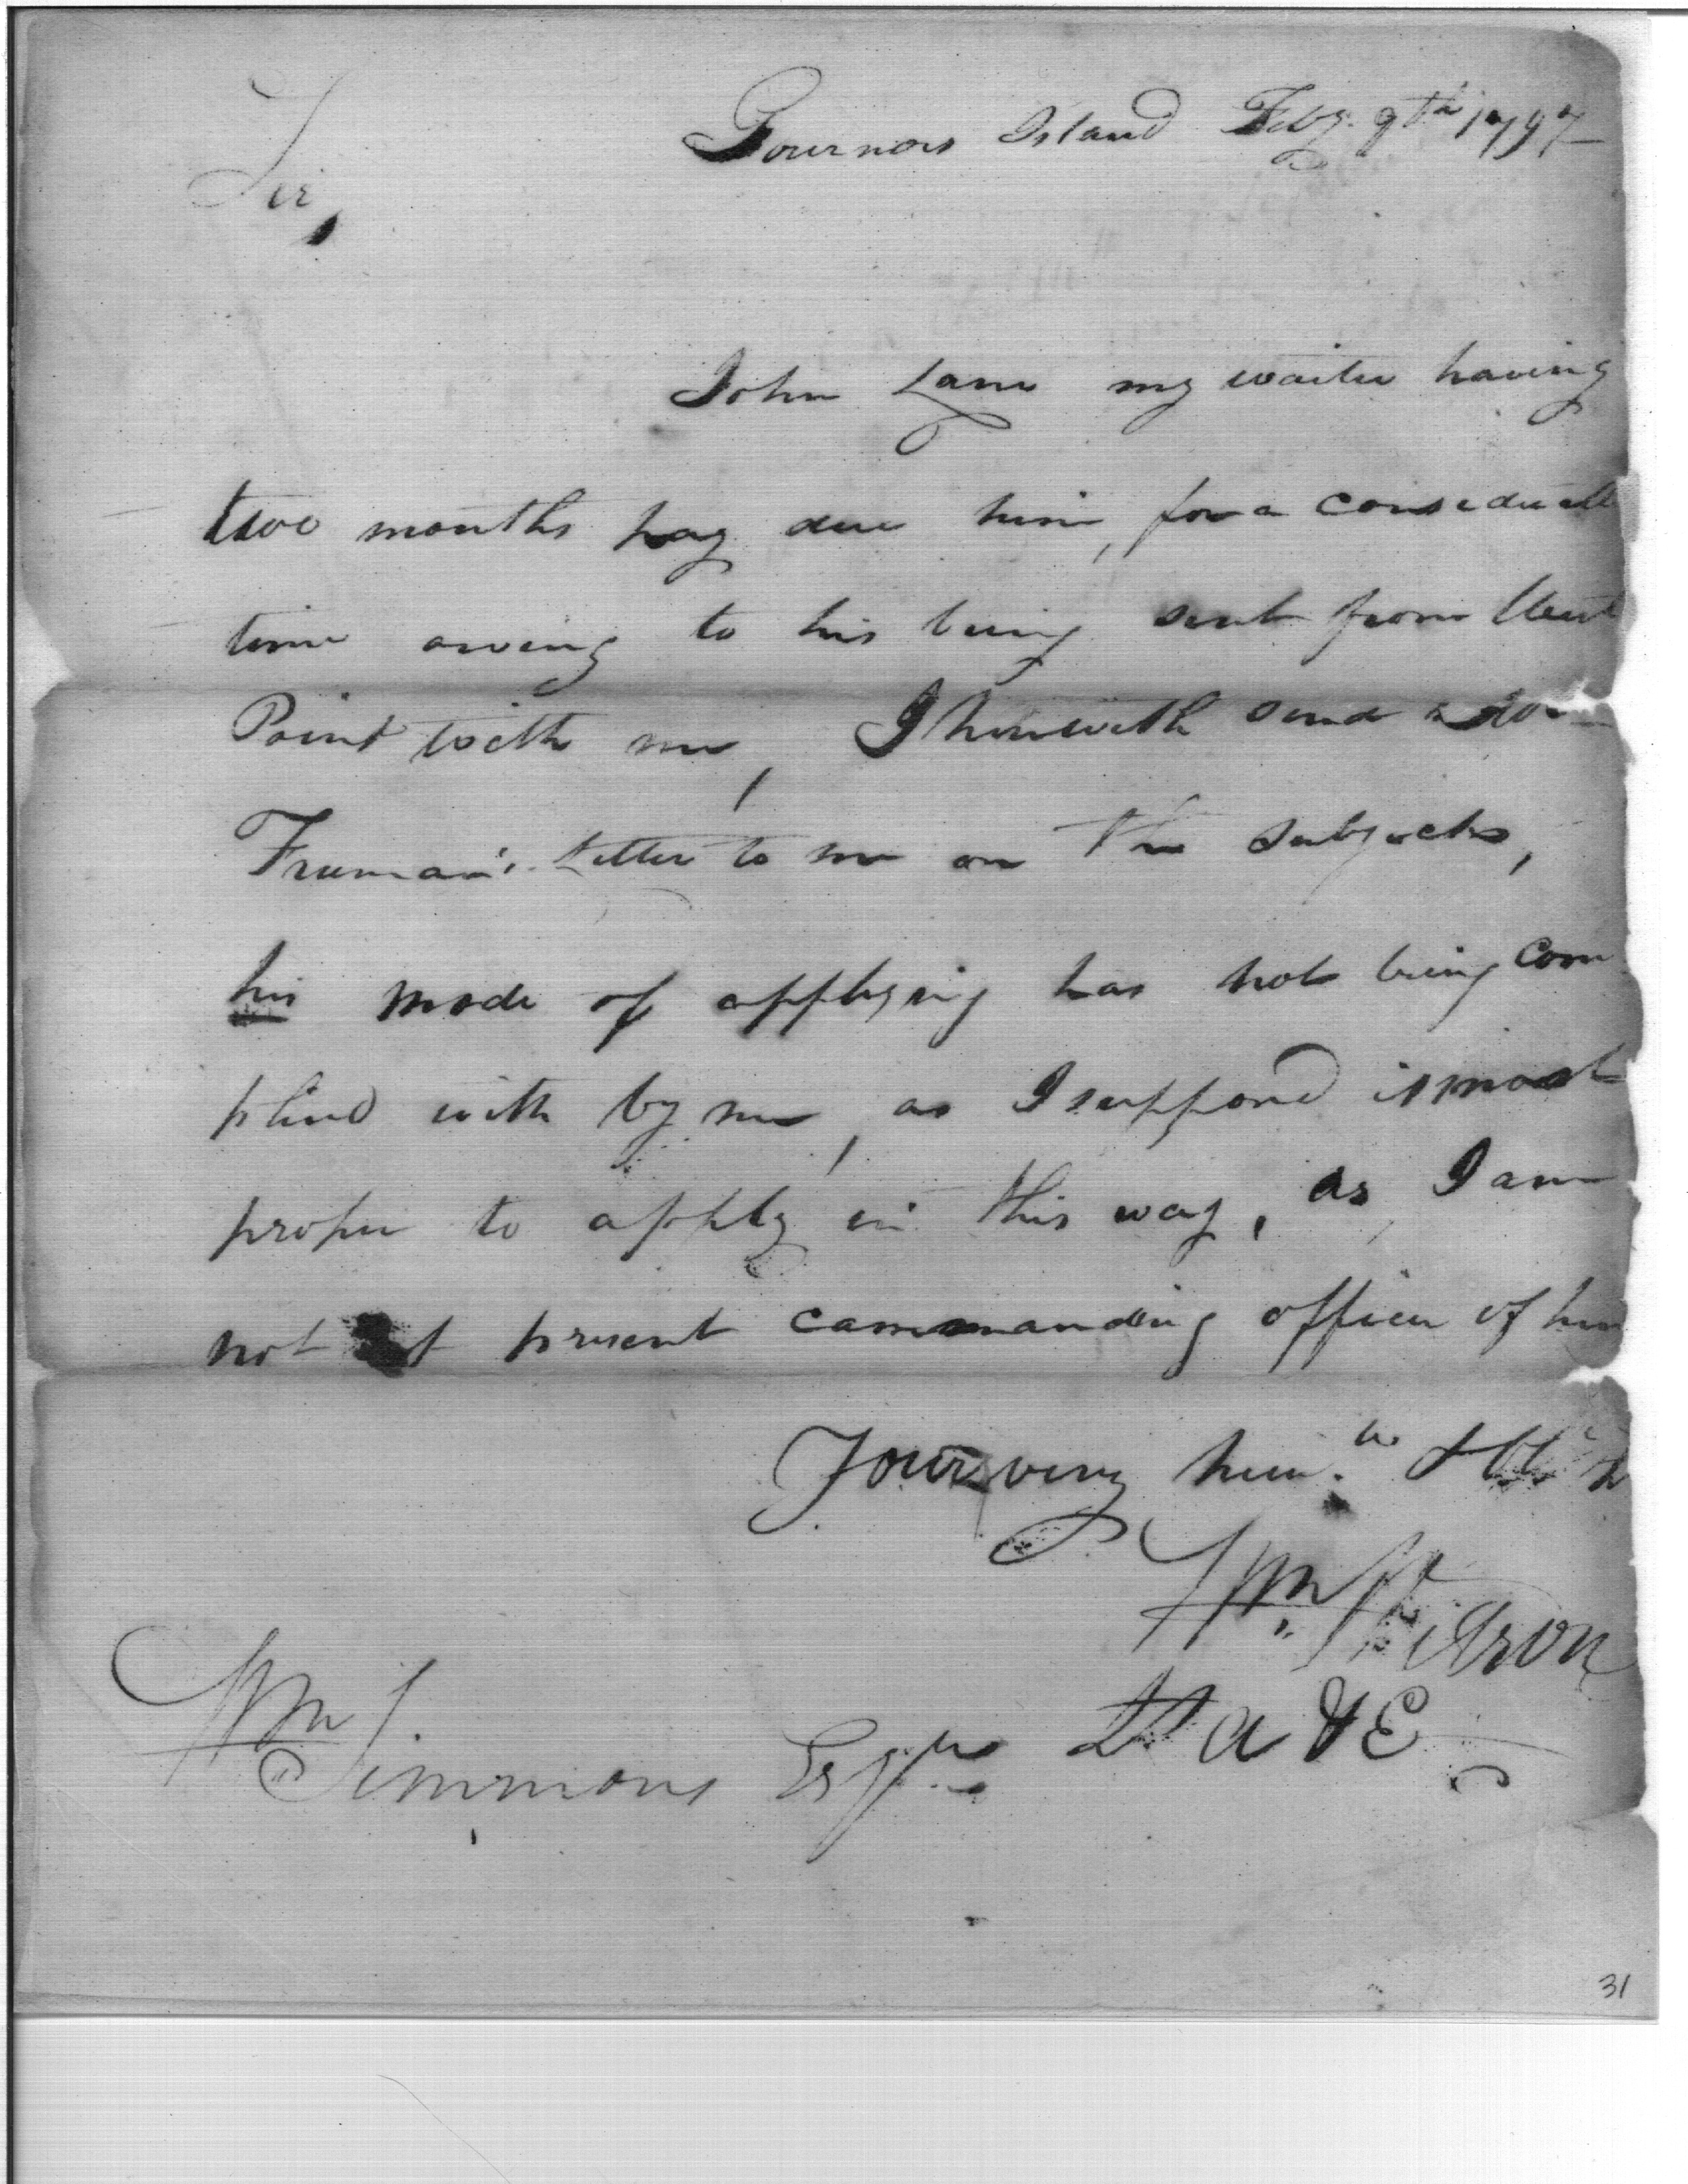 Governors Island Feby. 9th 1797
Sir,
John Lane my waiter having
two months pay due him, for a considerable
time owing to his being sent from West
Point with me, I herewith send
Freman's Letter to me on the Subject,
his mode of applying has not being com
plied with by me, as I suppose it most
proper to apply in this way, as I am
not at present commanding officer of him
Your very hum.
Wm
Lt A & E
Wm Simmons Esqr
31